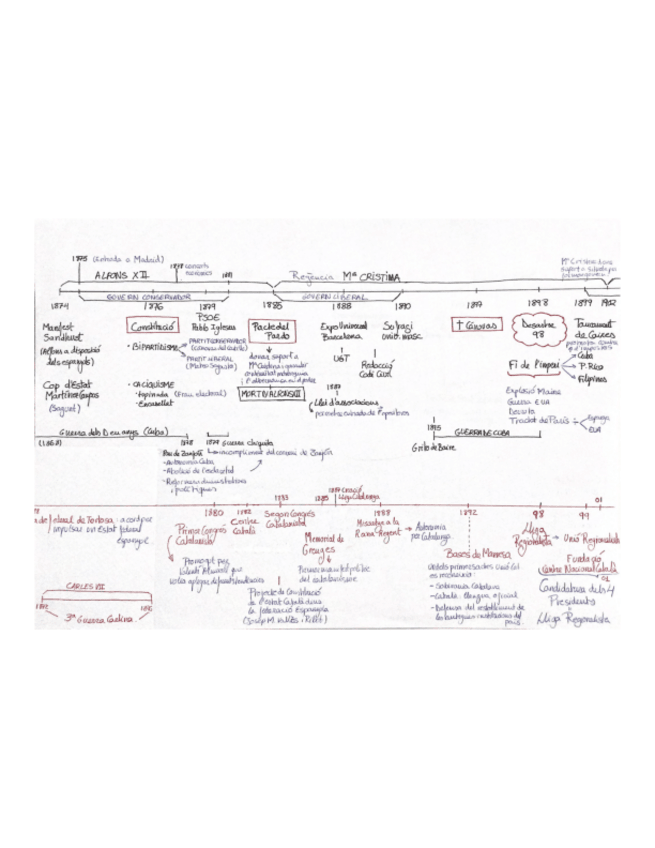 1875 (Entrada a Madrid)
ALFONS XII
1878
1881
Regencia Mª CRISTINA
GOVERN CONSERVADOR
GOVERN LIBERAL
1874 1876 1879 1885 1888 1890 1897 1898 1899 1902
Manifest
Sandhurst
(Alfons a disposició
dels espanyols)
Cop d'Estat
Martínez Campos
(Sagunt)
Constitució
· BIPARTIDISME
PARTIT CONSERVADOR
(Cánovas del Castillo)
PARTIT LIBERAL
(Mateo Sagasta)
· CACIQUISME
(Frau electoral)
· Encasellat
PSOE
Pablo Iglesias
Pacte del
Pardo
donar suport a
Mª Cristina
MORT D'ALFONS XII
Expo Universal
Barcelona
UGT
1889
Llei d'associacions
Sufragi
univ. masc.
Redacció
Codi Civil
† Cánovas
Desastre
98
Fi de l'imperi
Cuba
P. Rico
Filipines
Explosió Maine
Guerra EUA
Derrota
Tractat de París
Espanya
EUA
Tancament
de Caixes
Guerra dels Deu anys (Cuba)
(1868)
1878
1879 Guerra chiquita
Pau de Zanjón
incompliment del conveni de Zanjón
- Autonomia Cuba
- Abolició de l'esclavitud
1895
GUERRA DE CUBA
Grito de Baire
1880 1882 1883 1885 1887 1888 1892 98 99 01
Lliga Catalunya
federal de Tortosa
impulsar un Estat federal
espanyol
Primer Congrés
Catalanista
Promogut per
Valentí Almirall
Centre
Català
Segon Congrés
Catalanista
Projecte de Constitució
de l'Estat Català dins
la federació Espanyola
(Josep M. Vallès i Ribot)
Memorial de
Greuges
del catalanisme
Missatge a la
Reina Regent
Autonomia
per Catalunya
Bases de Manresa
- Sobirania Catalana
- Català llengua oficial
- Defensa del restabliment de
les antigues institucions del
país.
Lliga
Regionalista
Unió Regionalista
Fundació
Centre Nacional Català
01
Candidatura dels 4
Presidents
Lliga Regionalista
CARLES VII
1872
1876
3ª Guerra Carlina